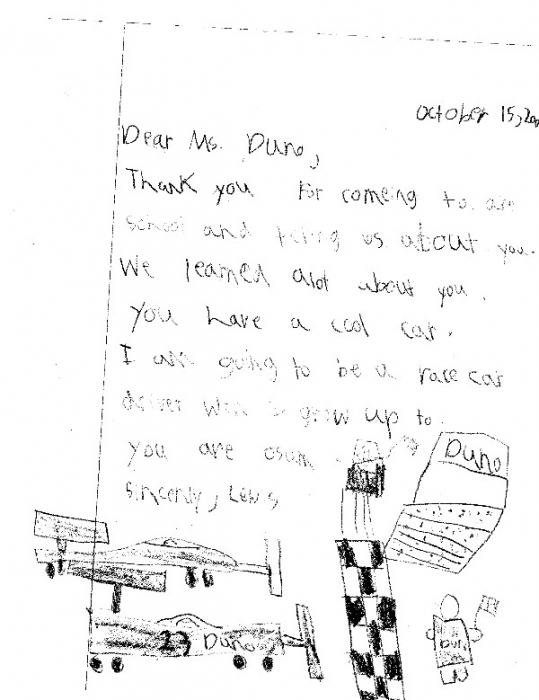 October 15, 200
Dear Ms. Duno,
Thank you for comeing to are
school and teling us about you.
We learned alot about you.
You have a cool car.
I am going to be a race car
driver wen I grow up to.
you are osum
Sincerly, Lewis
Duno
23 Duno
Duno